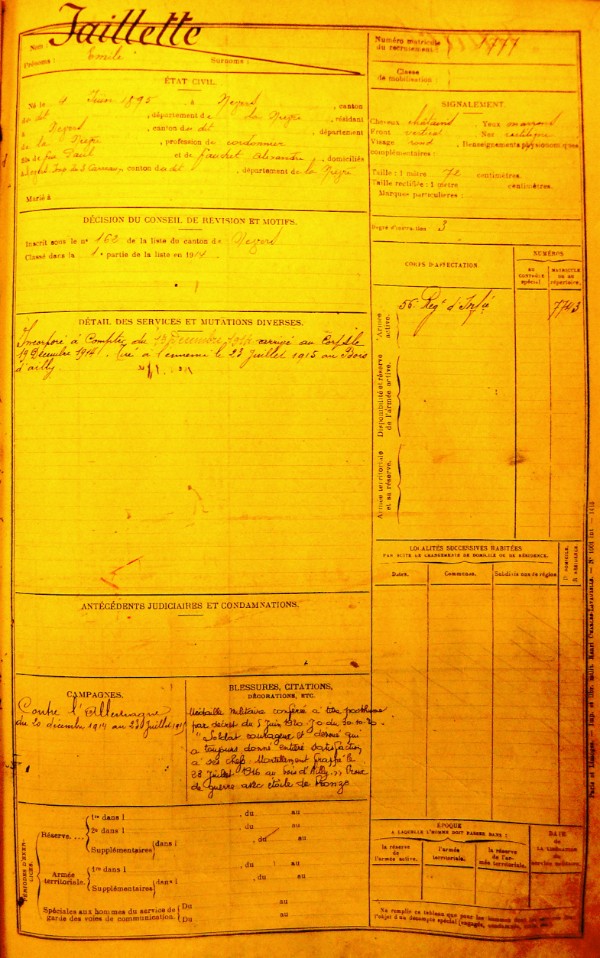 Jaillette
Nom :
Prénoms : Emile Surnoms :
Numéro matricule
du recrutement : 1777
Classe
de mobilisation :
ÉTAT CIVIL.
Né le 4 1895, à , canton
du dit, département de la , résidant
à , canton du dit, département
de la , profession de cordonnier
fils de feu Paul et de , domiciliés
, canton du dit, département de la
Marié à
SIGNALEMENT.
Cheveux châtains Yeux marrons
Front vertical Nez rectiligne
Visage rond Renseignements physionomiques
complémentaires :
Taille : 1 mètre 72 centimètres.
Taille rectifiée : 1 mètre centimètres.
Marques particulières :
Degré d'instruction : 3
DÉCISION DU CONSEIL DE RÉVISION ET MOTIFS.
Inscrit sous le n° 162 de la liste du canton de
Classé dans la 1e partie de la liste en 1914
DÉTAIL DES SERVICES ET MUTATIONS DIVERSES.
Incorporé à compter du Décembre 1914 arrivé au Corps le
19 Décembre 1914. Tué à l'ennemi le 23 Juillet 1915 au Bois
d'ailly
CORPS D'AFFECTATION
NUMÉROS
AU CONTRÔLE SPÉCIAL
MATRICULE OU AU RÉPERTOIRE.
Armée active.
56e Reg' d'Inf'ie 7743
Disponibilité et réserve de l'armée active.
Armée territoriale et sa réserve.
LOCALITÉS SUCCESSIVES HABITÉES
PAR SUITE DE CHANGEMENTS DE DOMICILE OU DE RÉSIDENCE.
Dates. Communes. Subdivisions de région D. domicile. R. résidence.
ANTÉCÉDENTS JUDICIAIRES ET CONDAMNATIONS.
CAMPAGNES.
Contre l'Allemagne
du 20 décembre 1914 au 23 Juillet 1915
BLESSURES, CITATIONS,
DÉCORATIONS, ETC.
Médaille militaire conféré à titre posthume
par décret du 5 Juin 1920 J.O du 20.10.20.
"Soldat courageux et dévoué qui
a toujours donné entière satisfaction
à ses chefs. Mortellement frappé le
Juillet au bois d'Ailly." Croix
de guerre avec étoile de bronze
PÉRIODES D'EXERCICES.
Réserve.... 1re dans l , du au
2e dans l , du au
Supplémentaires dans l , du au
Armée territoriale. 1re dans l , du au
Supplémentaires dans l , du au
Spéciales aux hommes du service de Du au
garde des voies de communication. Du au
ÉPOQUE
A LAQUELLE L'HOMME DOIT PASSER DANS :
la réserve de l'armée active. l'armée territoriale. la réserve de l'armée territoriale.
DATE
DE
LA LIBÉRATION
DU SERVICE MILITAIRE.
Ne remplir ce tableau que pour les hommes
l'objet d'un décompte spécial